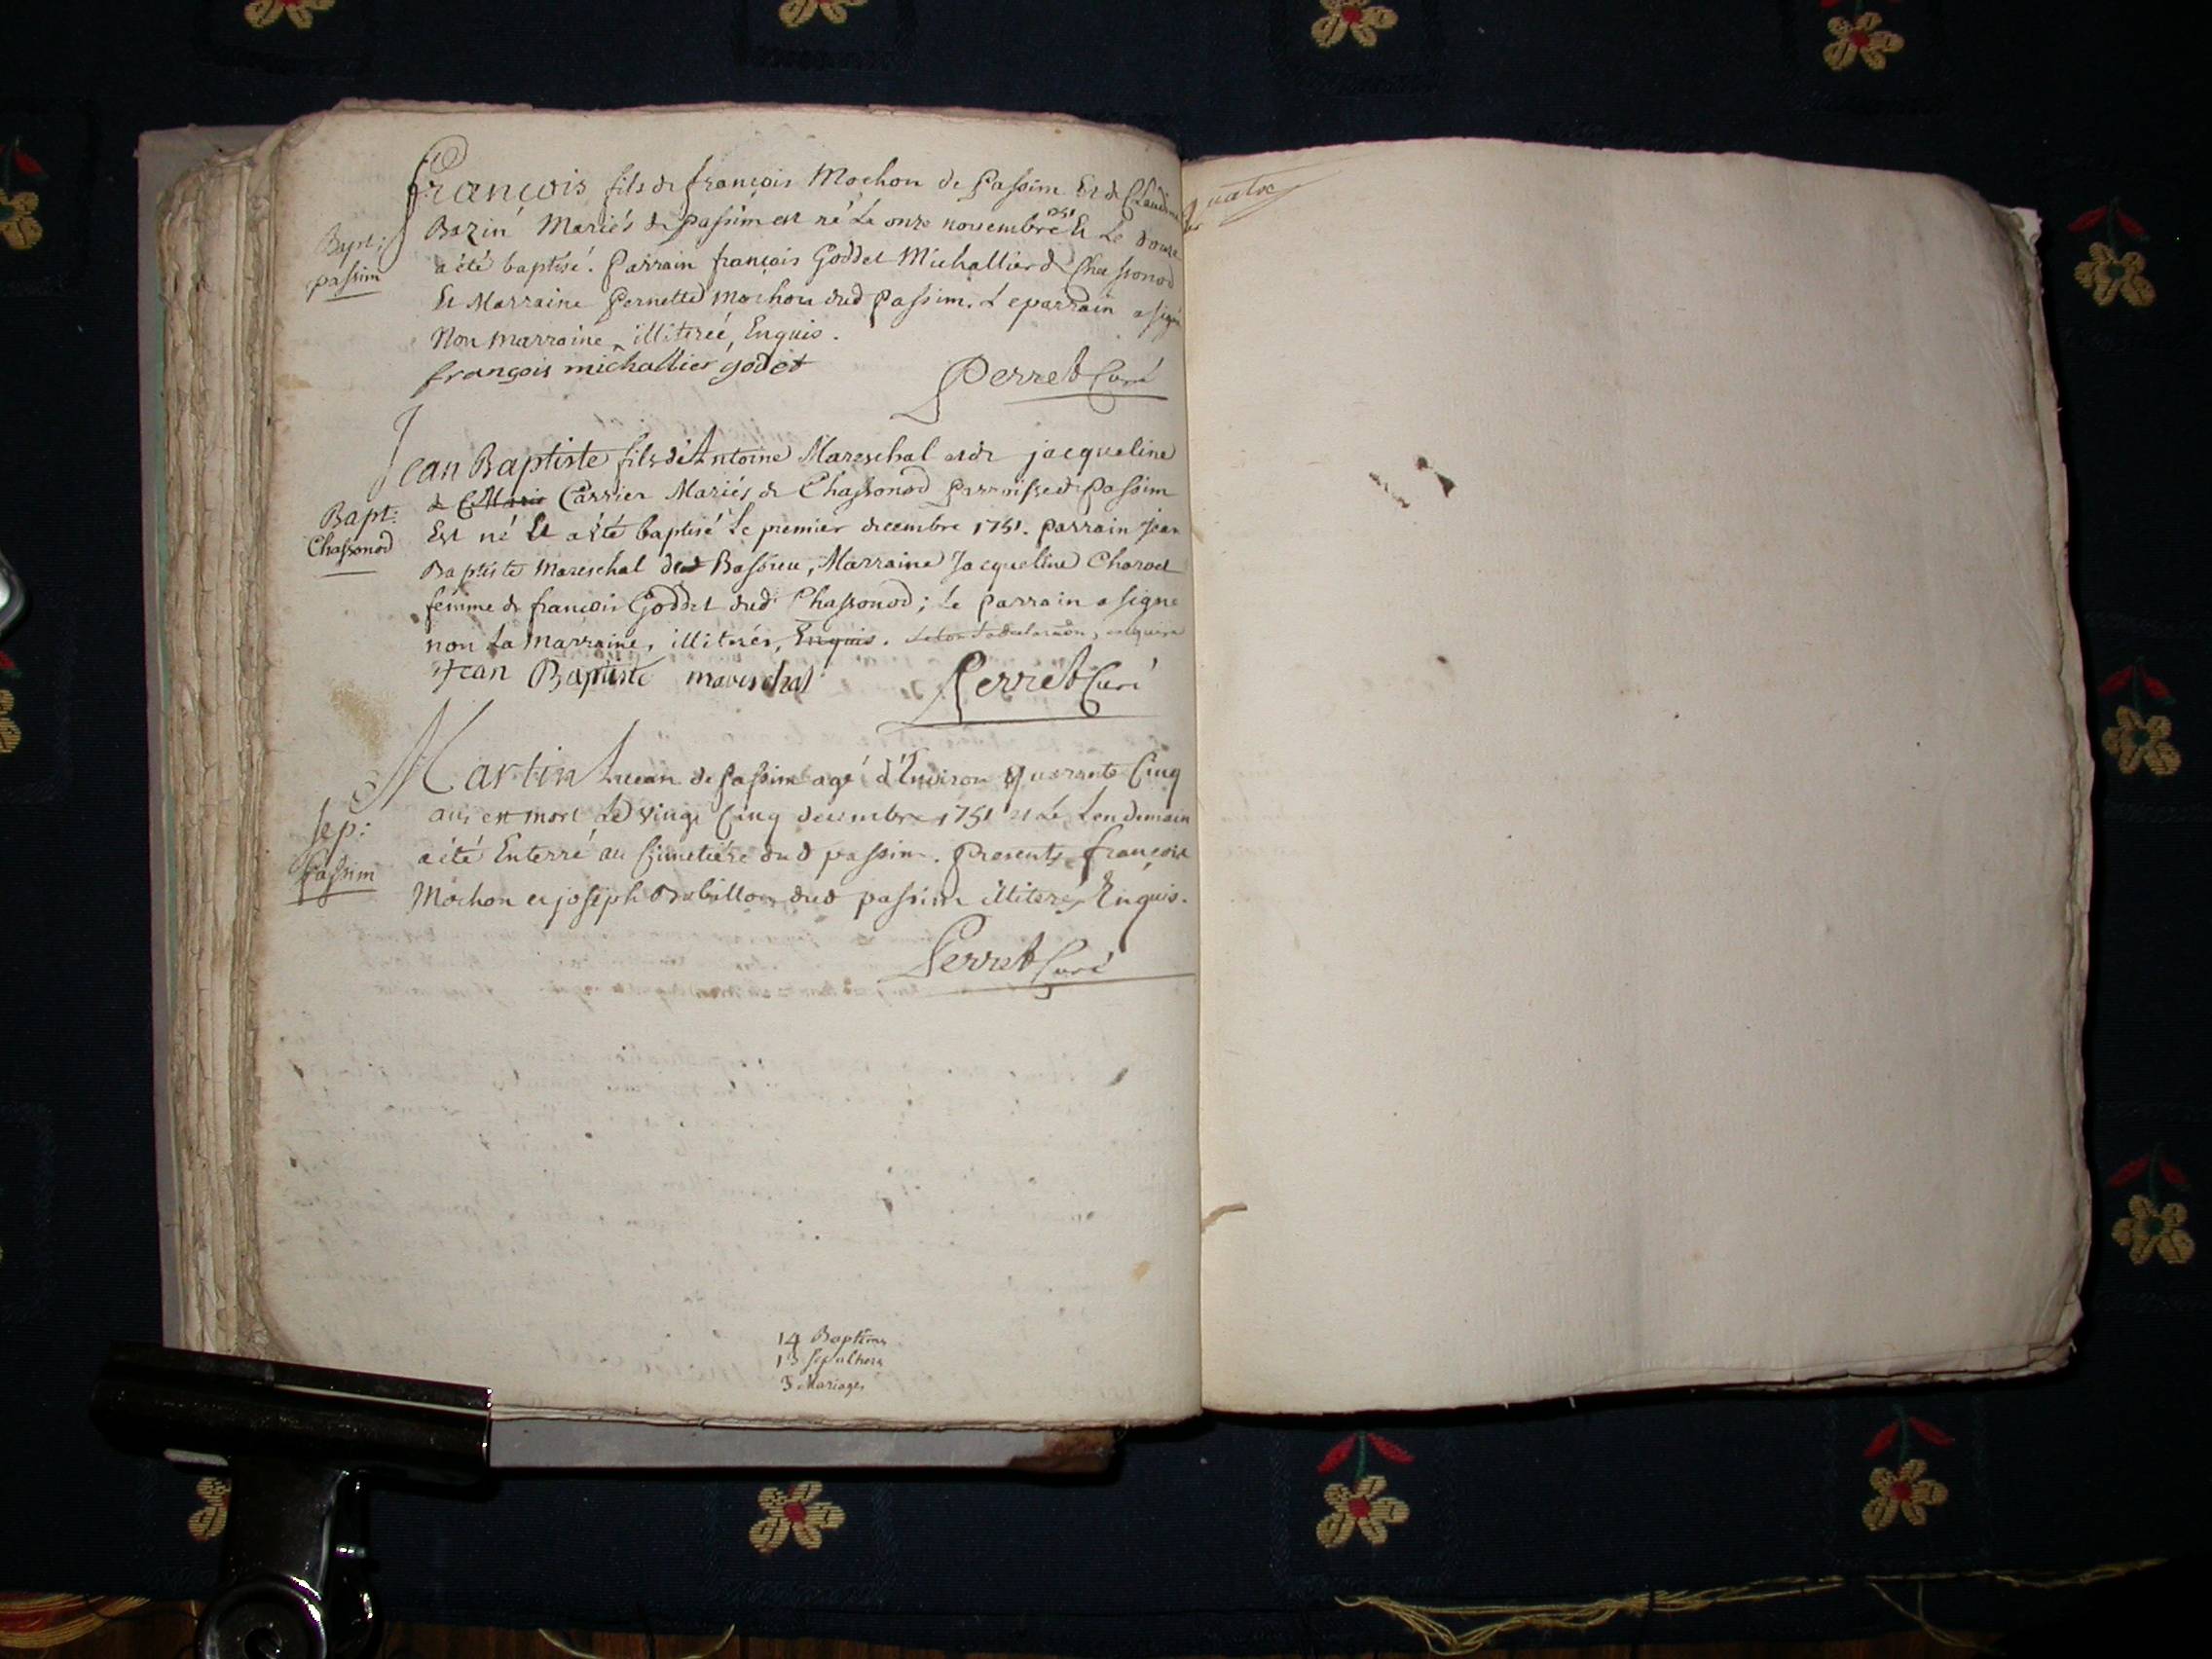 François fils de françois Mochon de Passin Et de Claudine
Bapt:
passim
Bazin Mariés de passim est né Le onze novembre 1751 Et Le douze
a été baptisé. Parrain françois Goddet Michallier de Chassonod
Et Marraine Pernette Mochon dud Passim. Le parrain a signé
Non marraine illiterée, Enquis.
françois michallier godet
Perret Curé
Jean Baptiste fils de Antoine Mareschal et de jacqueline
Bapt:
Chassonod
Carrier Mariés de Chassonod parroisse de Passim
Est né Et a été baptisé Le premier decembre 1751. parrain Jean
Baptiste Mareschal de Bassieu, Marraine Jacqueline Charvet
femme de françois Goddet dud Chassonod; Le parrain a signé
non La Marraine, illiterés, Enquis. enquise
Jean Baptiste mareschal
Perret Curé
Martin de Passim agé d'Environ Quarante Cinq
Sep:
Passim
ans est mort Le vingt Cinq decembre 1751 et Le Lendemain
a été Enterré au Cimetière dud passim. Presents françois
Mochon et joseph Babillon dud passim illiterés Enquis.
Perret Curé
14 Baptêmes
13 sepultures
3 Mariages
quatre